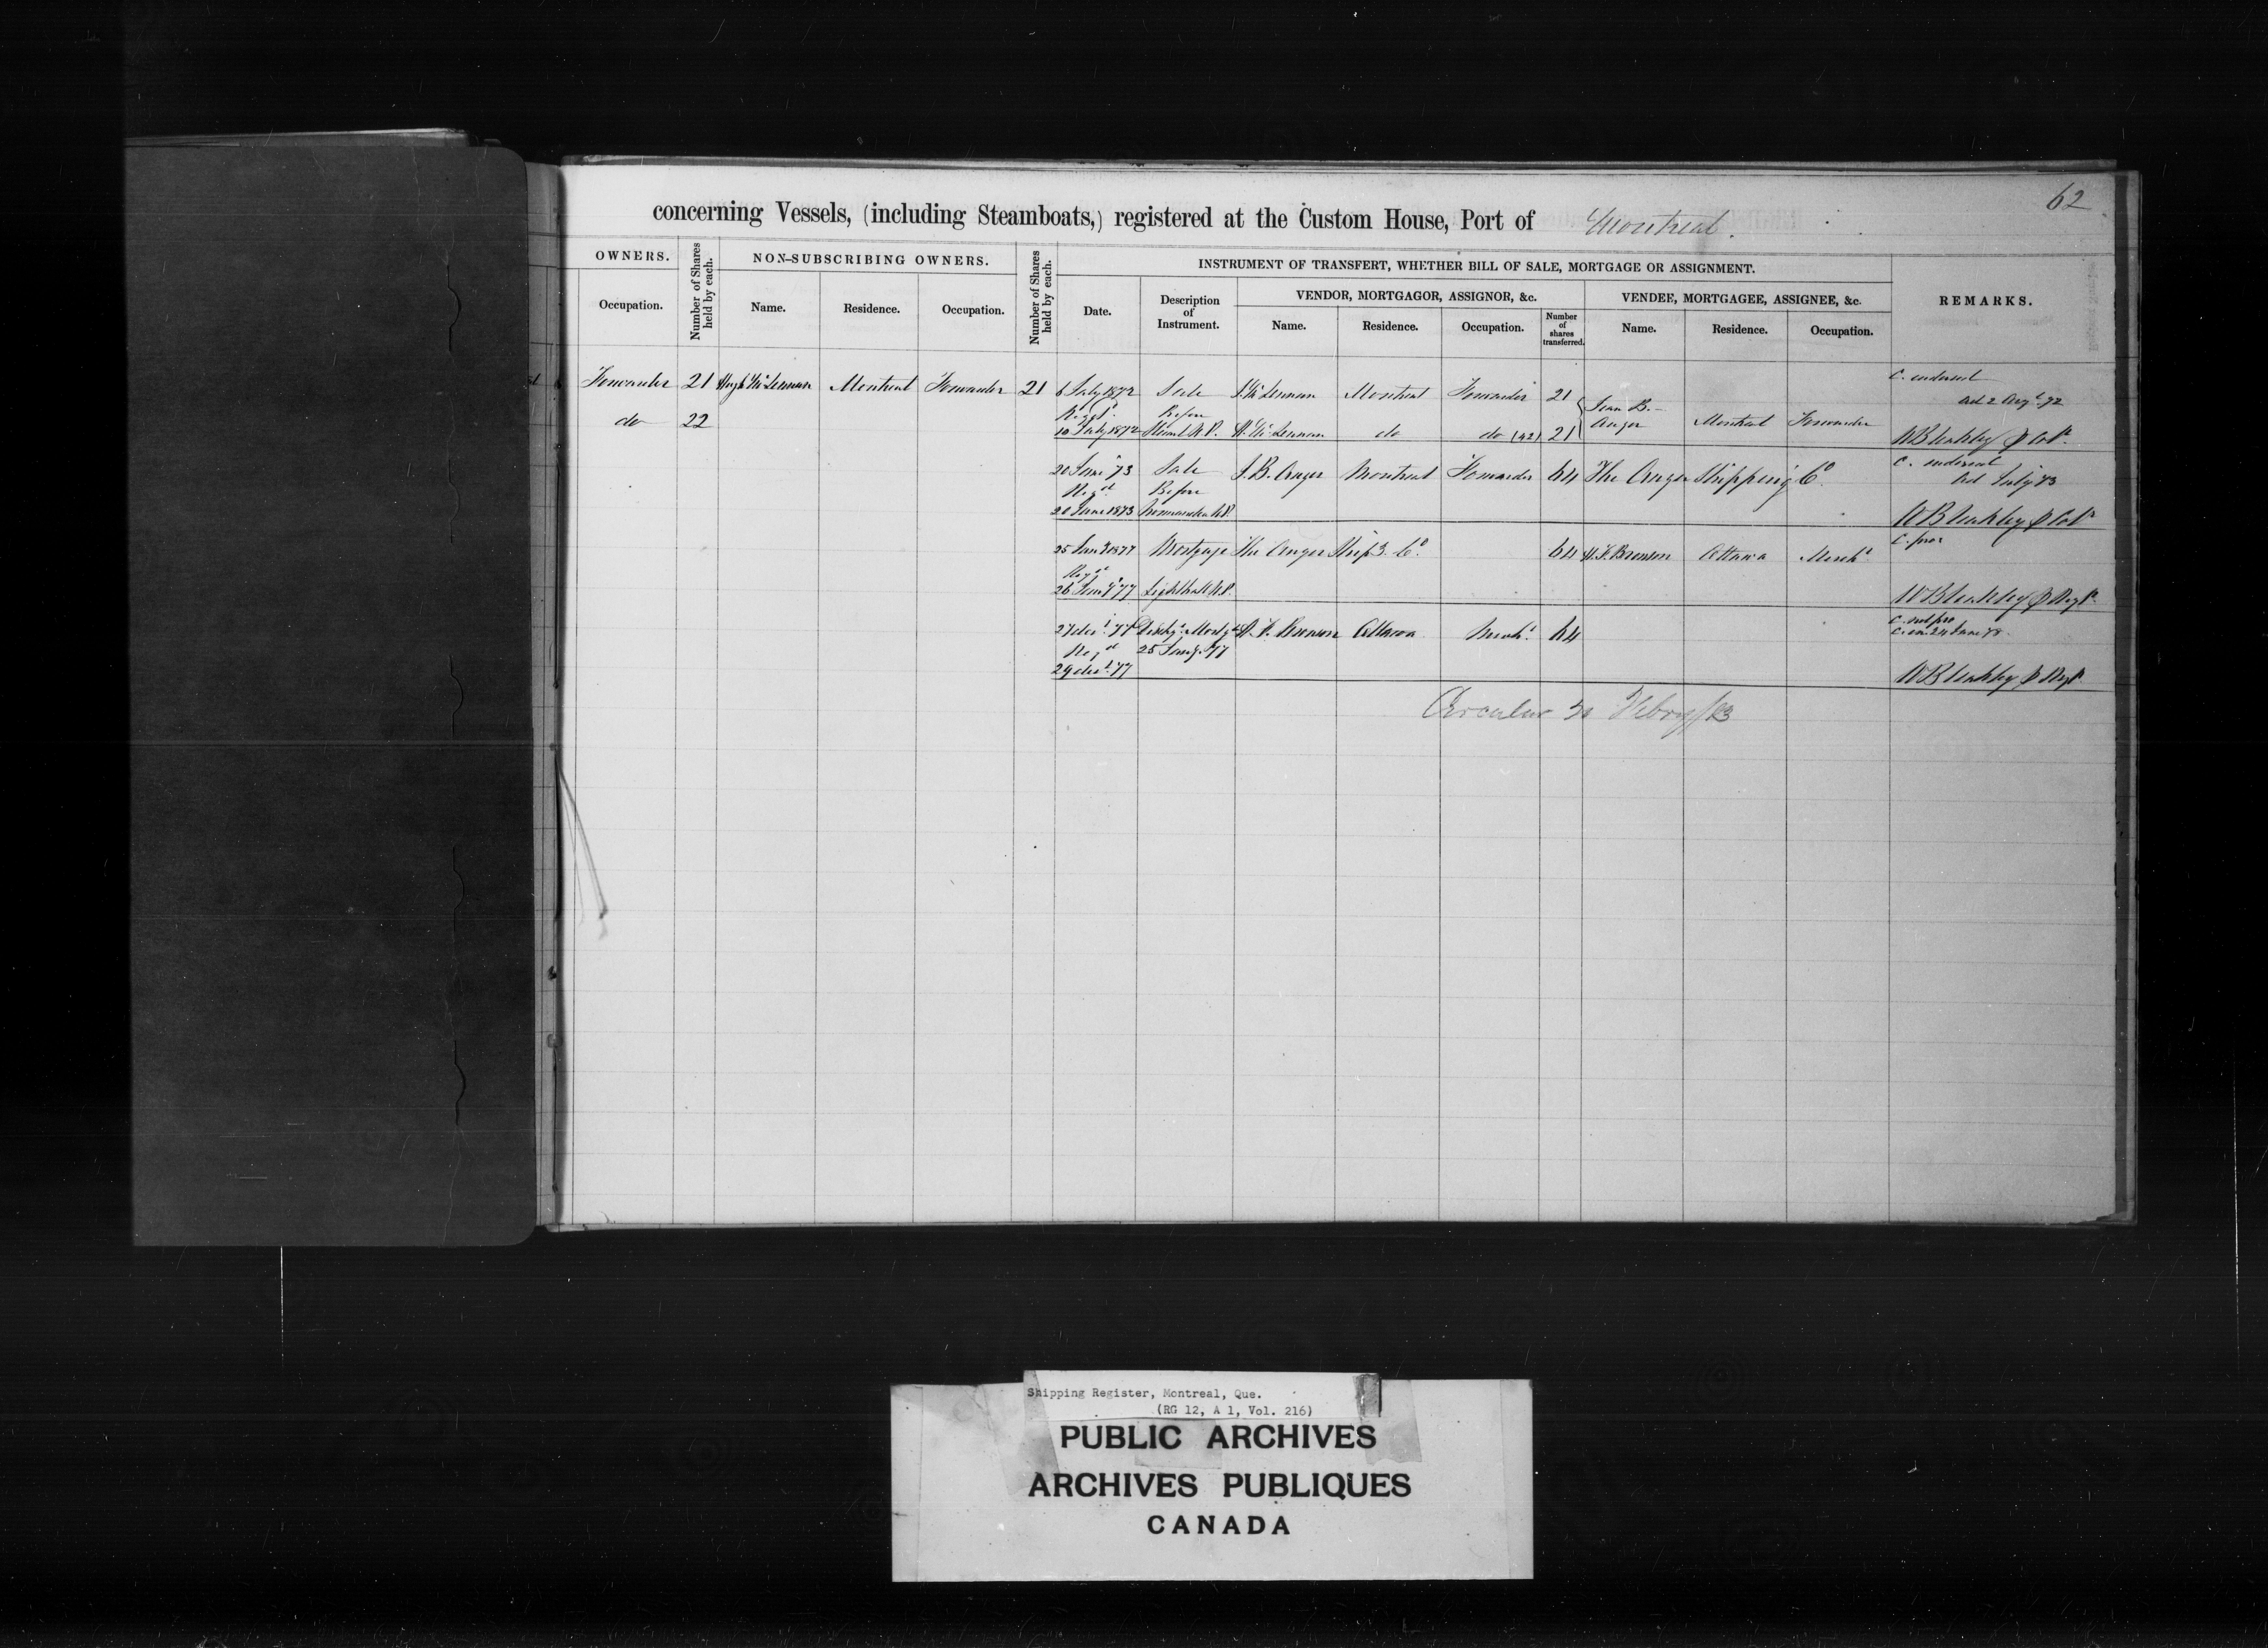 62
concerning Vessels, (including Steamboats,) registered at the Custom House, Port of Montreal.
OWNERS.
Number of Shares held by each.
NON-SUBSCRIBING OWNERS.
Number of Shares held by each.
INSTRUMENT OF TRANSFERT, WHETHER BILL OF SALE, MORTGAGE OR ASSIGNMENT.
REMARKS.
VENDOR, MORTGAGOR, ASSIGNOR, &c.
VENDEE, MORTGAGEE, ASSIGNEE, &c.
Occupation. Name. Residence. Occupation. Date. Description of Instrument. Name. Residence. Occupation. Number of shares transferred. Name. Residence. Occupation.
C. endorsed
Forwarder 21 Hugh McLennan Montreal Forwarder 21 6 July 1872 Sale J. McLennan Montreal Forwarder 21
and 2 Augt 72
do 22 Regd. Before Jean B. Auger Montreal Forwarder
10 July 1872 N.P. H. McLennan do do (42) 21
W Bleakley Colr
20 June 73 Sale J. B. Auger Montreal Forwarder 64 The Auger Shipping Co.
C. endorsed
July 73
Regd Before
20 June 1873 N.P.
W Bleakley Colr
25 Jany 1877 Mortgage The Auger Ship'g Co. 64 H. F. Bronson Ottawa Mercht
C. pro
Regd
26 Jany 77 Lighthall N.P.
W Bleakley Regr
27 decr. 77 Dischg. Mortg. H. F. Bronson Ottawa Mercht 64
C. not pro
C. en. 24 June 78.
Regd 25 Jany. 77
29 decr. 77
W Bleakley Regr
Circular 30 Febry/83
Shipping Register, Montreal, Que.
(RG 12, A 1, Vol. 216)
PUBLIC ARCHIVES
ARCHIVES PUBLIQUES
CANADA